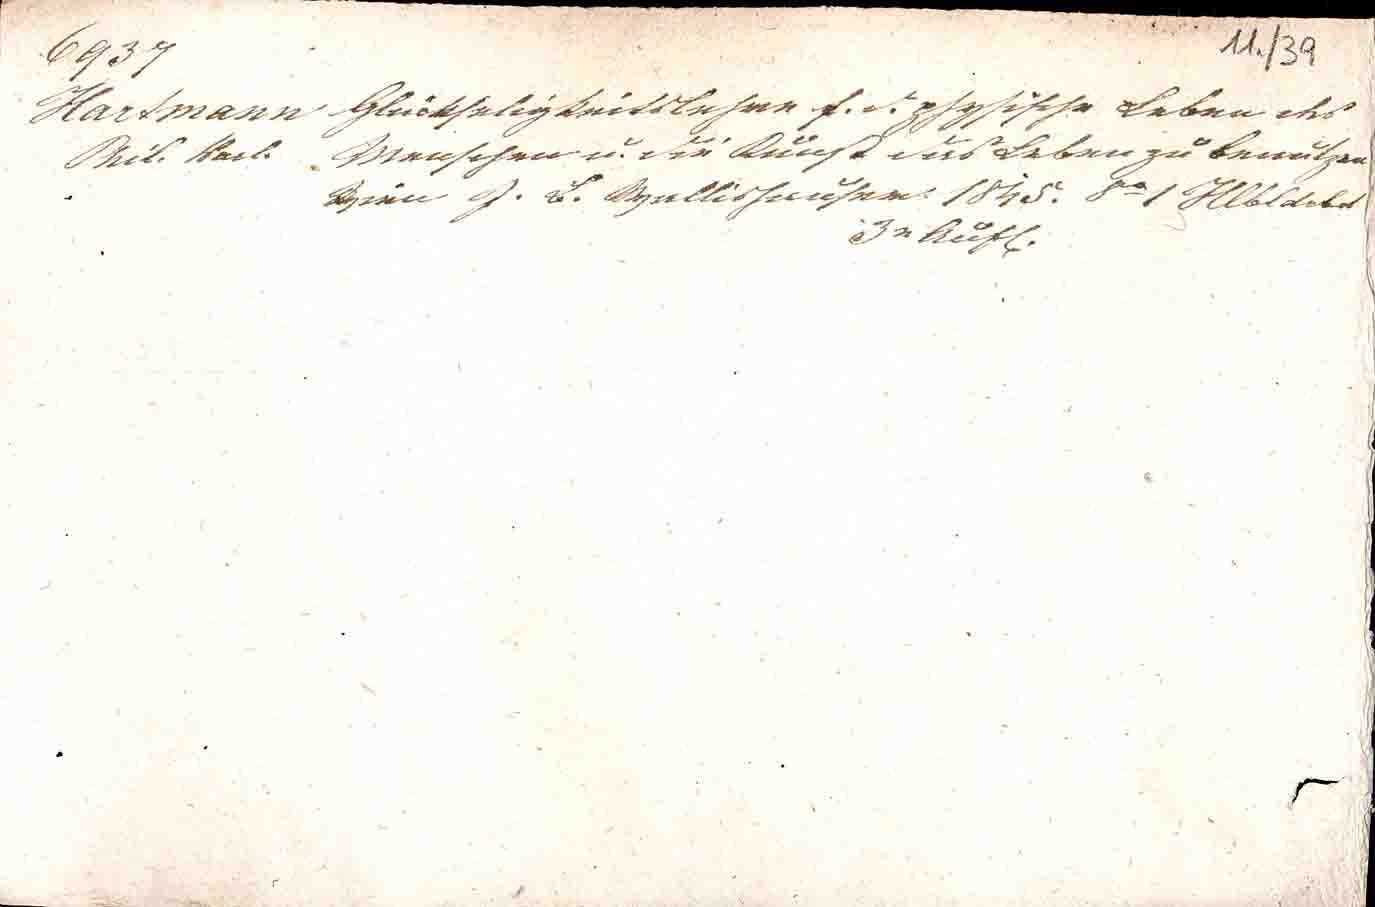 6937
11./39
Hartmann Glückseligkeitslehre f. d. physische Leben des
Phil. Karl. Menschen u. die Kunst das Leben zu benutzen
Wien J. B. Wallishausser 1845. 8° 1 Hlbldrbd
3e Aufl.